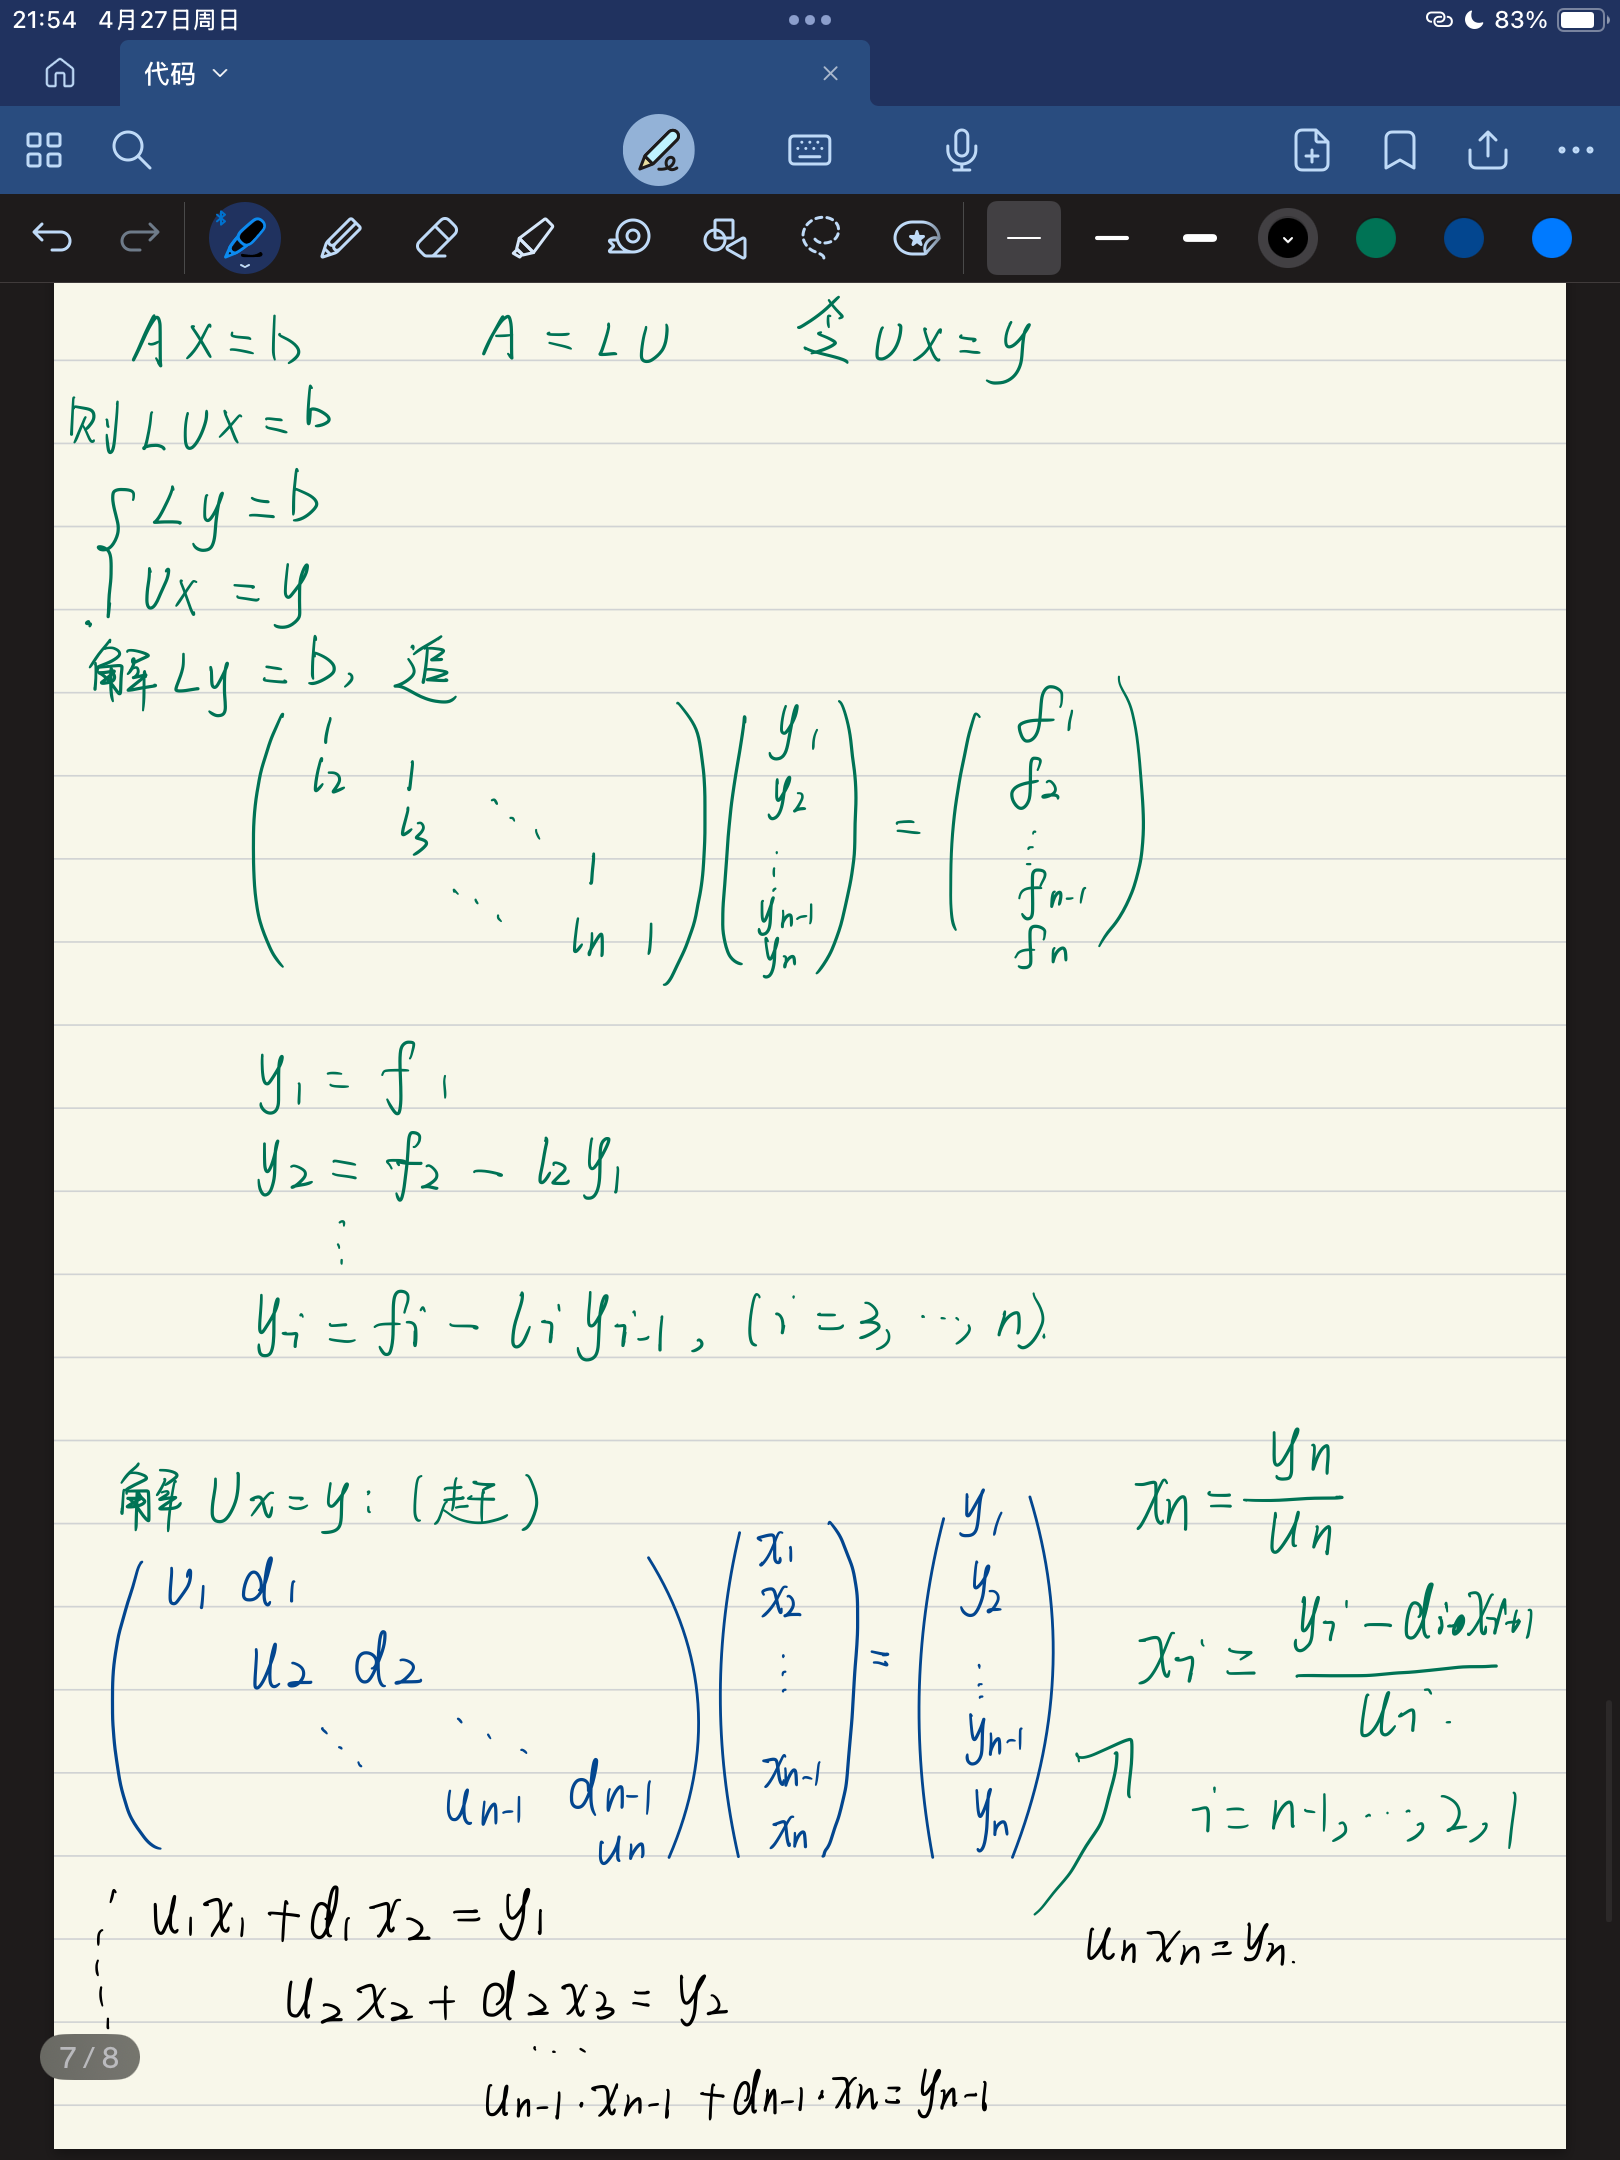 21:54 4月27日周日 83%
代码
Ax=b A=LU 令 Ux=y
则 LUx=b
{ Ly=b
Ux=y
解 Ly=b, 追
1
l2 1
l3 ⋱
1
⋱
ln 1
y1
y2
⋮
yn-1
yn
=
f1
f2
⋮
fn-1
fn
y1 = f1
y2 = f2 - l2y1
⋮
yi = fi - li yi-1, (i=3, ⋯, n).
解 Ux=y: (赶)
u1 d1
u2 d2
⋱ ⋱
un-1 dn-1
un
x1
x2
⋮
xn-1
xn
=
y1
y2
⋮
yn-1
yn
xn = yn / un
xi = yi - di xi+1 / ui.
i = n-1, ⋯, 2, 1
u1x1 + d1x2 = y1
u2x2 + d2x3 = y2
⋯
un-1·xn-1 + dn-1·xn = yn-1
unxn = yn.
7/8